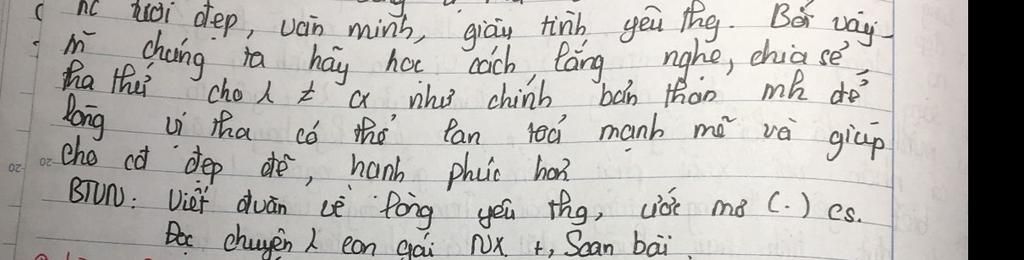 nc tươi đẹp, văn minh, giàu tình yêu thg. Bởi vậy
m̄ chúng ta hãy học cách lắng nghe, chia sẻ
tha thứ cho λ ≠ cx như chính bản thân mh để
lòng vị tha có thể lan toả mạnh mẽ và giúp
cho cđ đẹp đẽ, hạnh phúc hơn
BTVN: Viết đvăn về lòng yêu thg, ước mơ (.) cs.
Đọc chuyện λ con gái NX +, Soạn bài